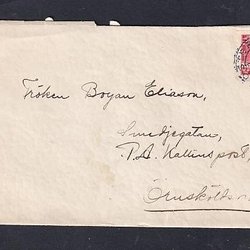 Fröken Boyan Eliason,
Smedjegatan,
P.A. Kallins post,
Örnsköldsv